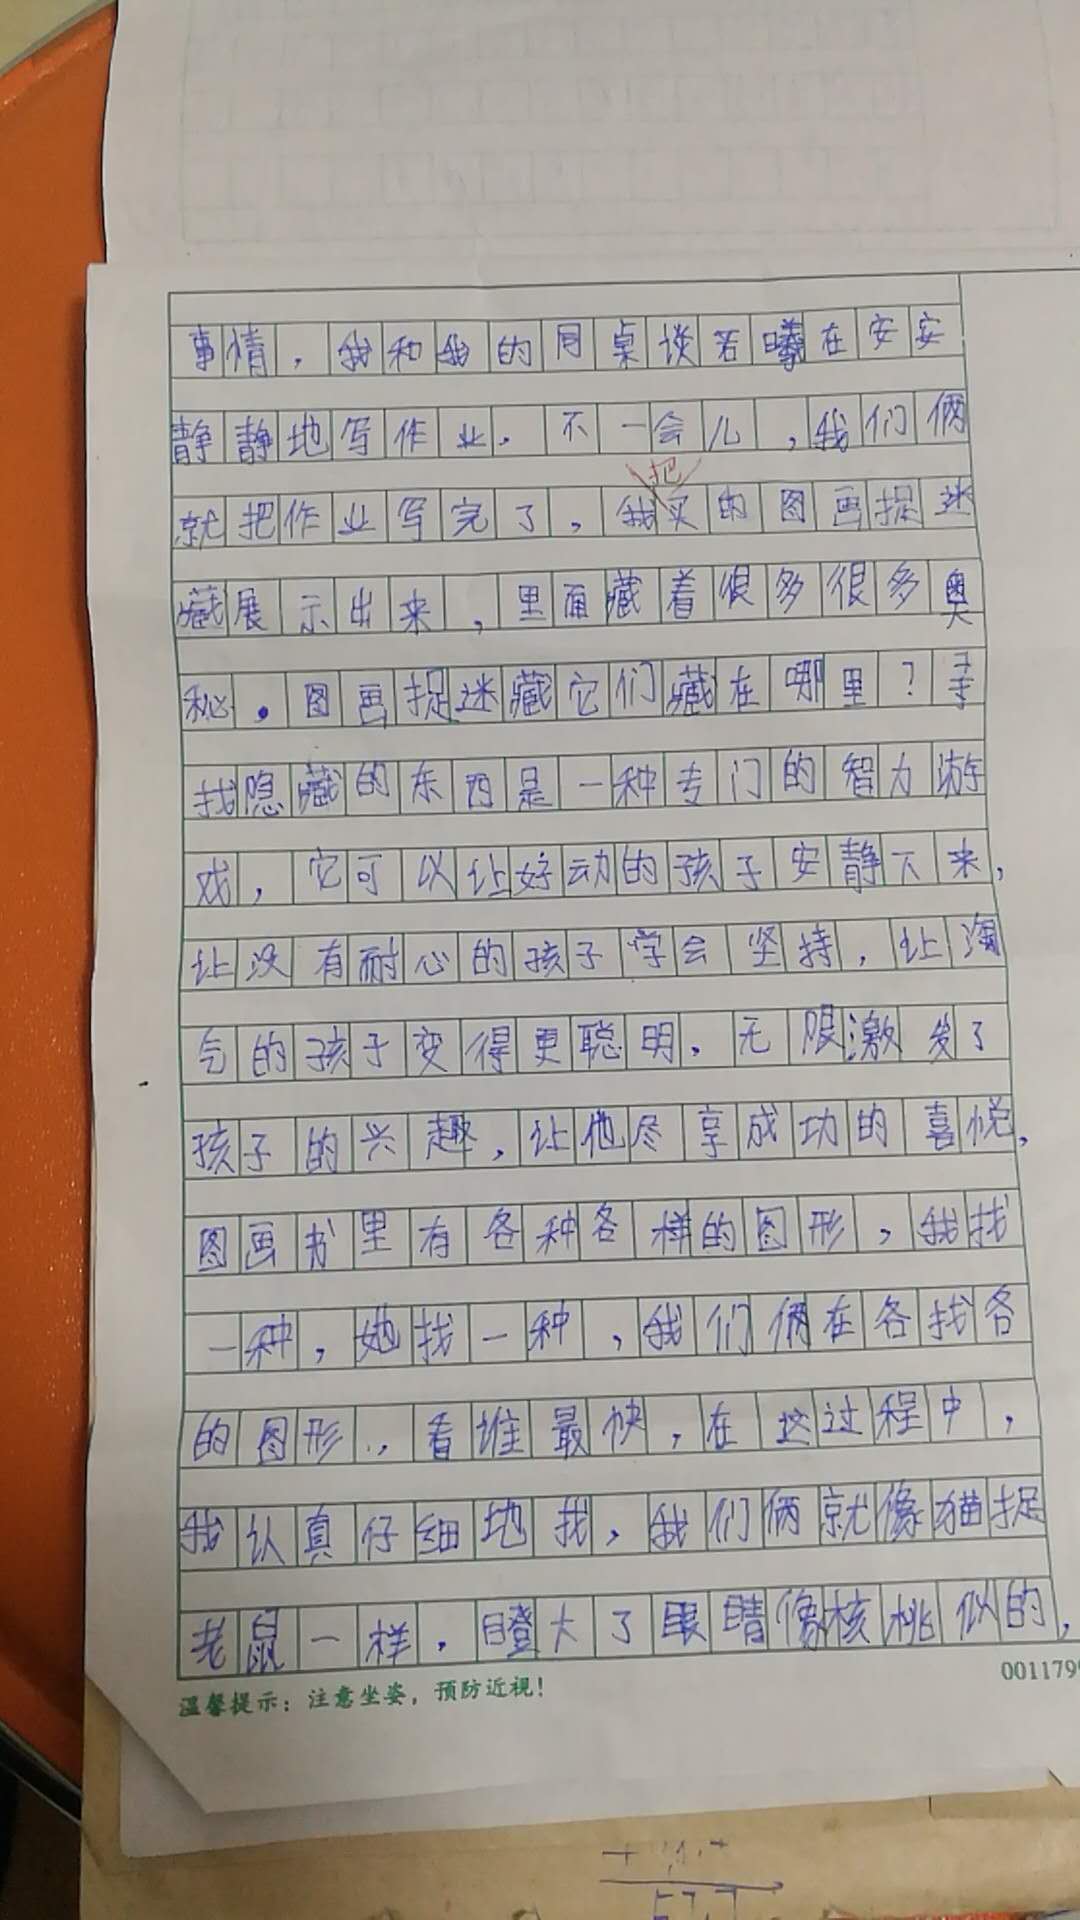 事情，我和我的同桌谈若曦在安安
静静地写作业。不一会儿，我们俩
把
就把作业写完了，我买的图画捉迷
藏展示出来，里面藏着很多很多奥
秘。图画捉迷藏它们藏在哪里？寻
找隐藏的东西是一种专门的智力游
戏，它可以让好动的孩子安静下来，
让没有耐心的孩子学会坚持，让淘
气的孩子变得更聪明。无限激发了
孩子的兴趣，让他尽享成功的喜悦，
图画书里有各种各样的图形，我找
一种，她找一种，我们俩在各找各
的图形，看谁最快，在这过程中，
我认真仔细地找，我们俩就像猫捉
老鼠一样，瞪大了眼睛像核桃似的，
温馨提示：注意坐姿，预防近视！